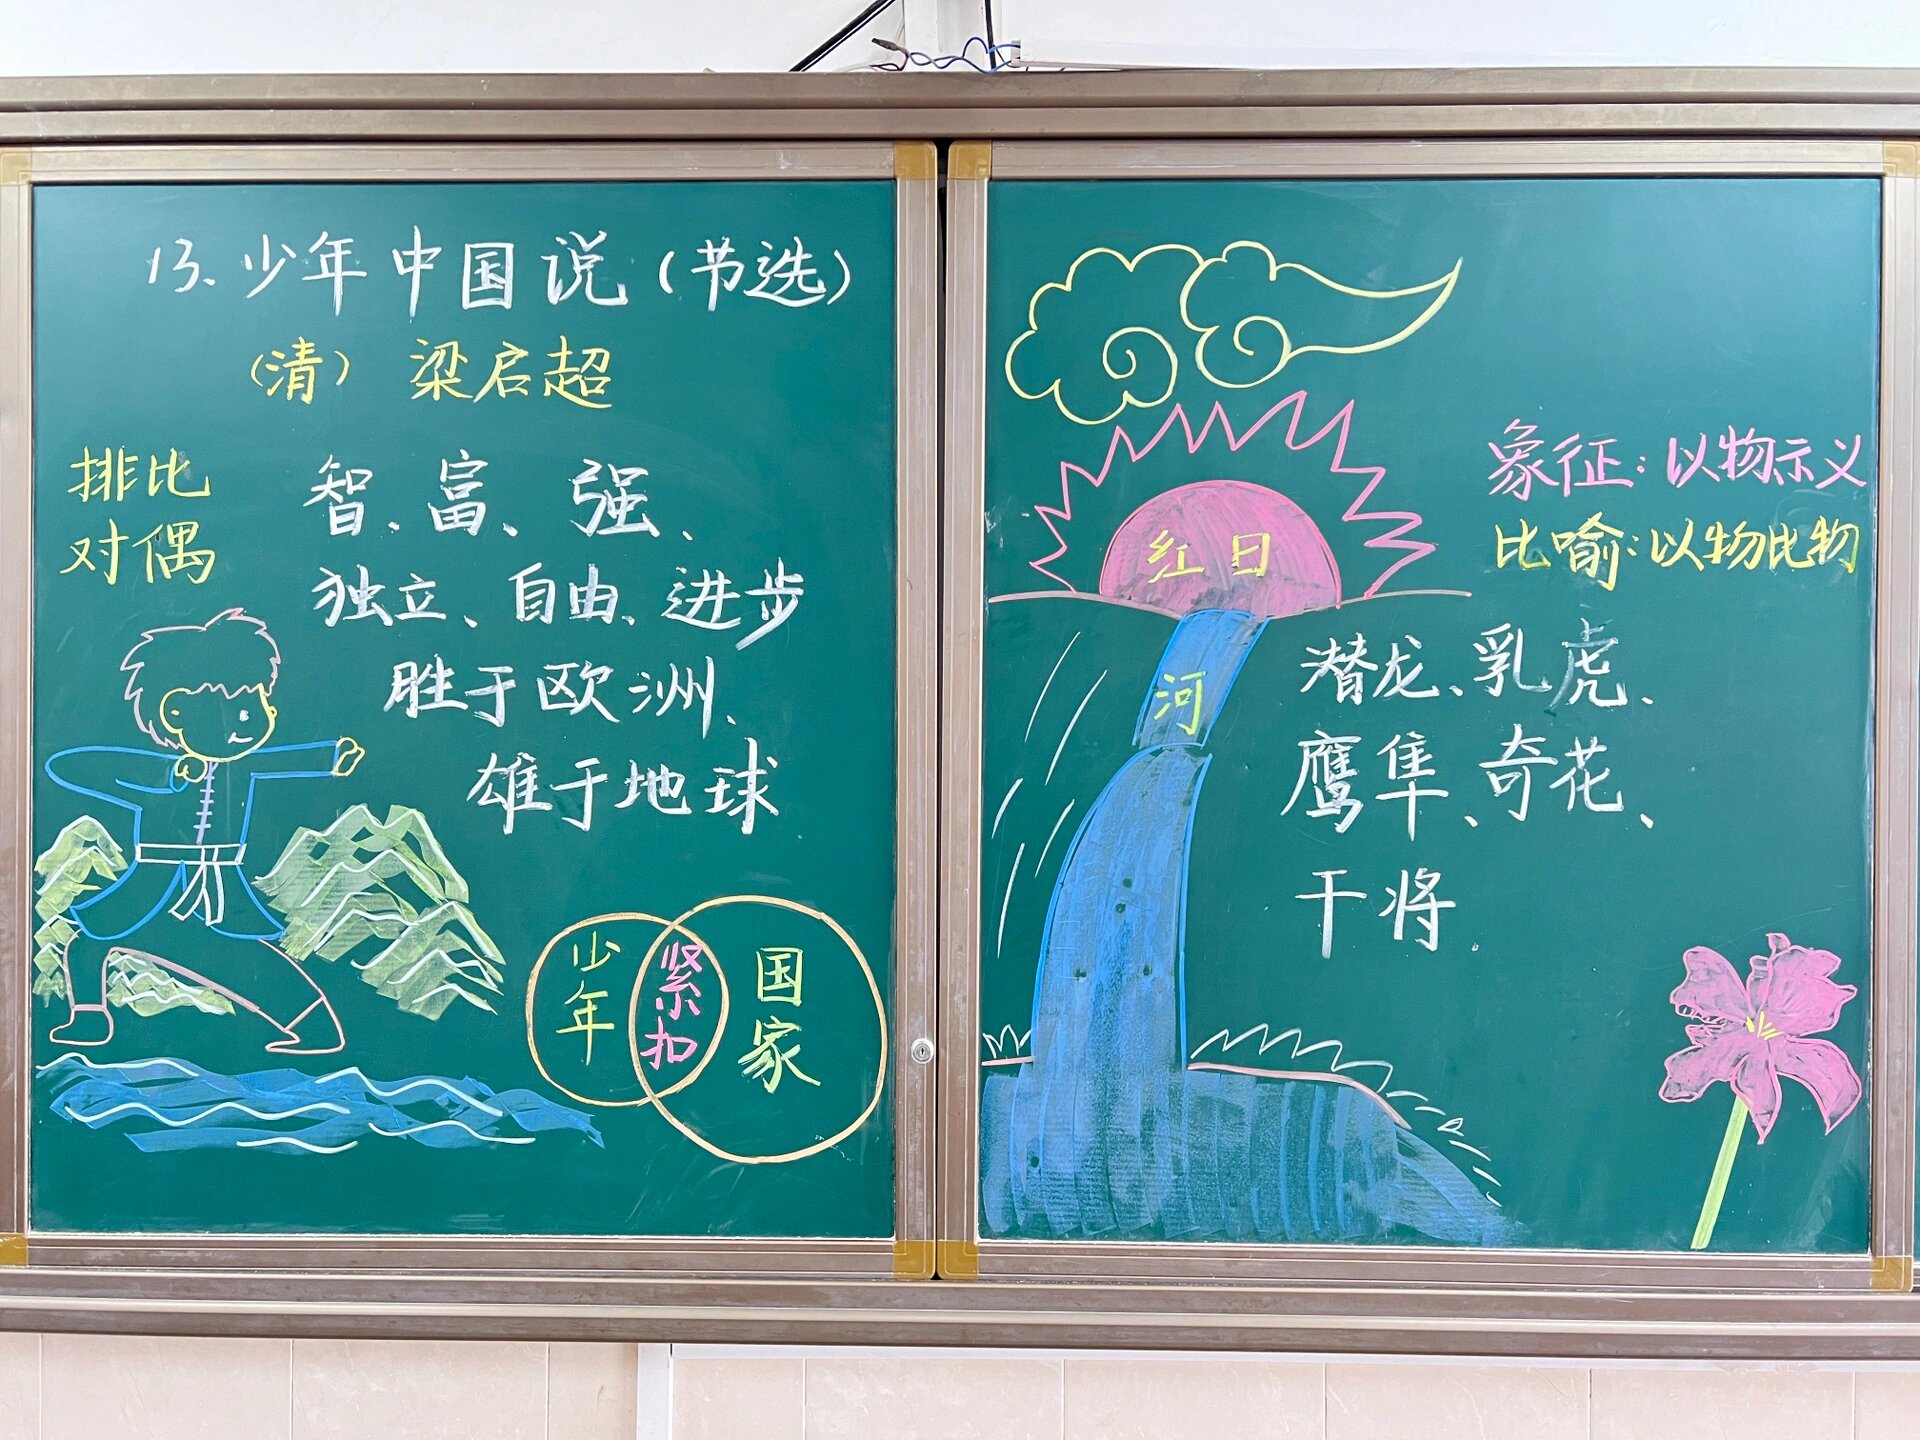 13.少年中国说(节选)
(清) 梁启超
排比
对偶
智、富、强、
独立、自由、进步
胜于欧洲、
雄于地球
少年
紧扣
国家
红日
河
象征:以物示义
比喻:以物比物
潜龙、乳虎、
鹰隼、奇花、
干将